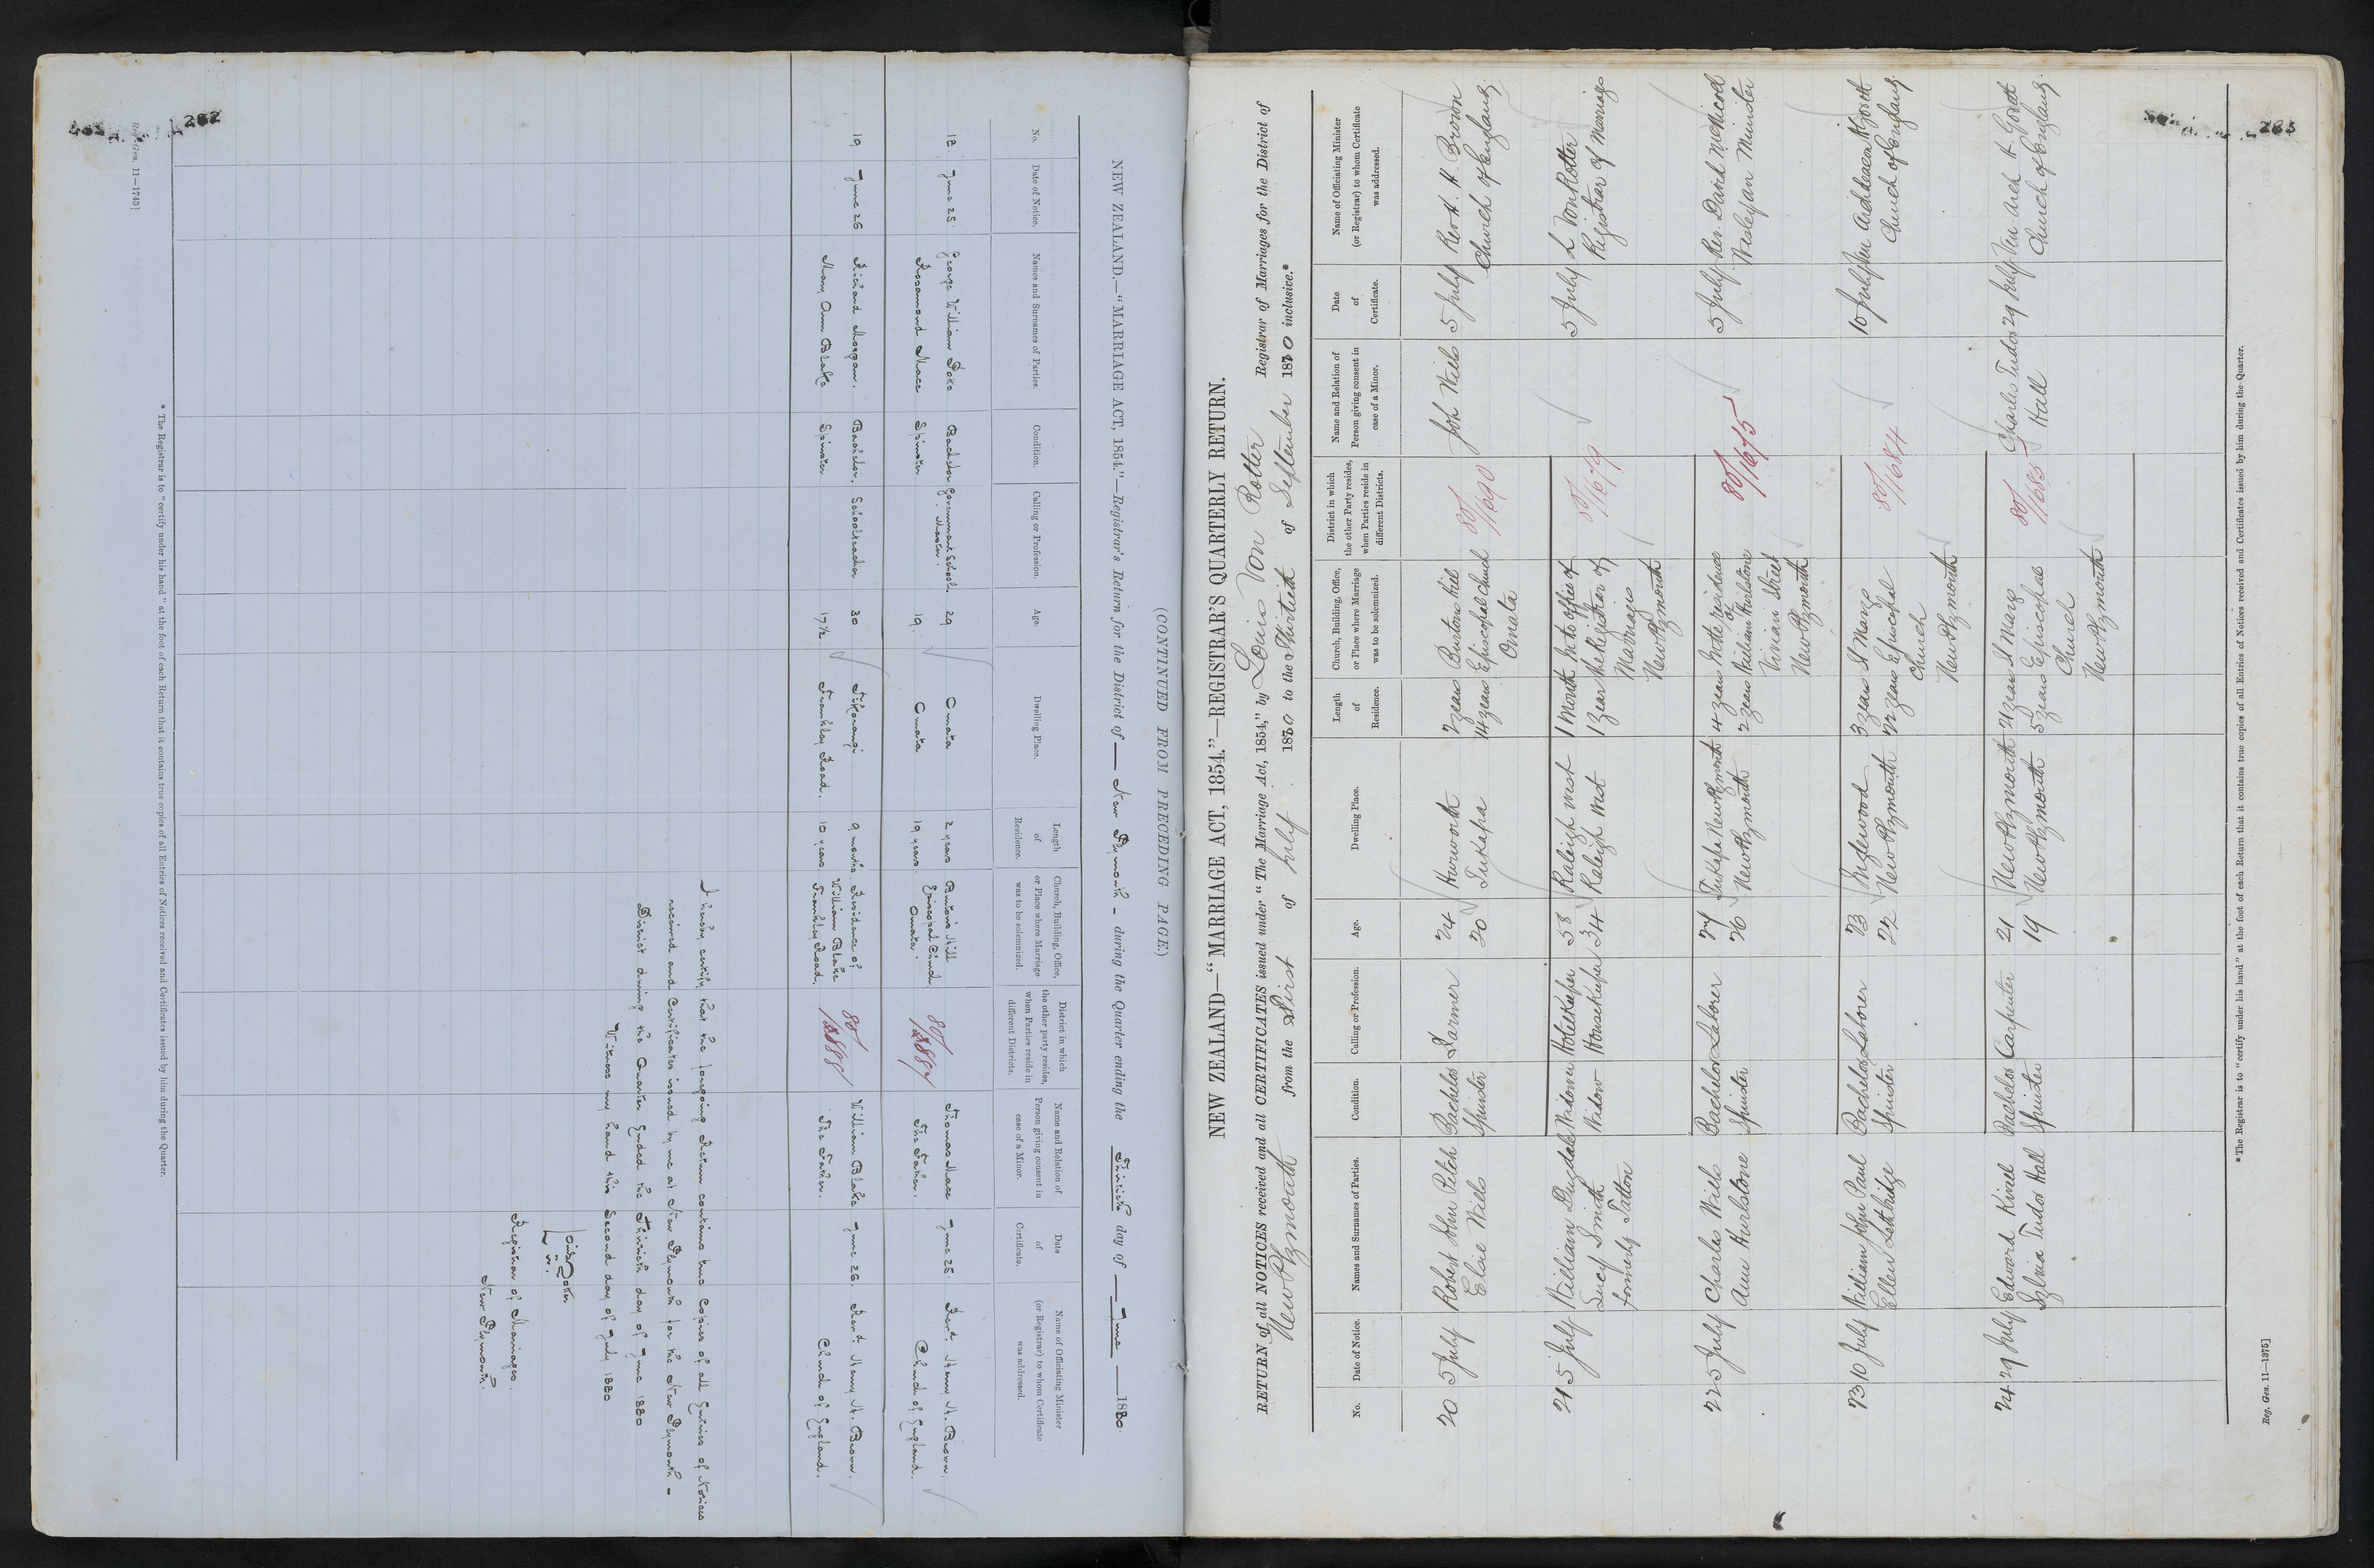 282
(CONTINUED FROM PRECEDING PAGE.)
NEW ZEALAND.—"MARRIAGE ACT, 1854."—Registrar's Return for the District of — New Plymouth — during the Quarter ending the Thirtieth day of — June — 1880.
No.
Date of Notice.
Names and Surnames of Parties.
Condition.
Calling or Profession.
Age.
Dwelling Place.
Length of Residence.
Church, Building, Office, or Place where Marriage was to be solemnized.
District in which the other party resides, when Parties reside in different Districts.
Name and Relation of Person giving consent in case of a Minor.
Date of Certificate.
Name of Officiating Minister (or Registrar) to whom Certificate was addressed.
18 June 25. George William Bachelor Government School Master. 29 Omata 2 years Burton's Hill Episcopal Church Omata. Thomas Mace June 25. Revd. Henry H. Brown.
Rosamond Mace Spinster 19. Omata 19 years The Father. Church of England.
19 June 26 Richard Morgan. Bachelor. Schoolteacher 30 Tikorangi. 9 months. Residence of William Blake Frankley Road. William Blake June 26. Revd. Henry H. Brown.
Mary Ann Blake Spinster 17½ Frankley Road. 10 years The Father. Church of England.
I hereby certify that the foregoing Return contains true Copies of all Entries of Notices
received and Certificates issued by me at New Plymouth for the New Plymouth -
District during the Quarter Ended the Thirtieth day of June 1880
Witness my hand this Second day of July 1880
Registrar of Marriages.
New Plymouth.
* The Registrar is to "certify under his hand" at the foot of each Return that it contains true copies of all Entries of Notices received and Certificates issued by him during the Quarter.
Reg. Gen. 11—1743]
283
NEW ZEALAND—"MARRIAGE ACT, 1854."—REGISTRAR'S QUARTERLY RETURN.
RETURN of all NOTICES received and all CERTIFICATES issued under "The Marriage Act, 1854," by Louis Von Rotter Registrar of Marriages for the District of
New Plymouth from the First of July 1880 to the Thirtieth of September 1880 inclusive.*
No.
Date of Notice.
Names and Surnames of Parties.
Condition.
Calling or Profession.
Age.
Dwelling Place.
Length of Residence.
Church, Building, Office, or Place where Marriage was to be solemnized.
District in which the other Party resides, when Parties reside in different Districts.
Name and Relation of Person giving consent in case of a Minor.
Date of Certificate.
Name of Officiating Minister (or Registrar) to whom Certificate was addressed.
20 5 July Robert John Pitch Bachelor Farmer 24 Hurworth 2 years Burtons Hill 80/1690 5 July Revd. H. Brown
Elsie Wells Spinster 20 Tukapa 14 years Episcopal Church Church of England
Omata
21 5 July William Dugdale Widower Hotelkeeper 58 Raleigh West 1 month In the office of 80/1679 5 July L Von Rotter
Lucy Smith Widow Housekeeper 34 Raleigh West 1 year the Registrar of Registrar of Marriage
formerly Tatton Marriages
New Plymouth
22 5 July Charles Wells Bachelor Laborer 27 Tukapa New Plymouth 4 years In the residence 80/1675 5 July Rev. David McNicoll
Ann Hurlstone Spinster 26 New Plymouth 2 years of William Hurlstone Wesleyan Minister
Vivian Street
New Plymouth
23 10 July William John Paul Bachelor Laborer 23 Inglewood 3 years St Marys 80/1684 10 July Ven Archdeacon H Govett
Ellen Lethbridge Spinster 22 New Plymouth 22 years Episcopal Church of England.
Church
New Plymouth
24 29 July Edward Bachelor Carpenter 21 New Plymouth 21 years St Marys 80/1683 Charles Tudor 29 July Ven. Arch H. Govett
Sylvia Tudor Hall Spinster 19 New Plymouth 5 years Episcopal Hall Church of England.
Church
New Plymouth
* The Registrar is to "certify under his hand" at the foot of each Return that it contains true copies of all Entries of Notices received and Certificates issued by him during the Quarter.
Reg. Gen. 11—1375]